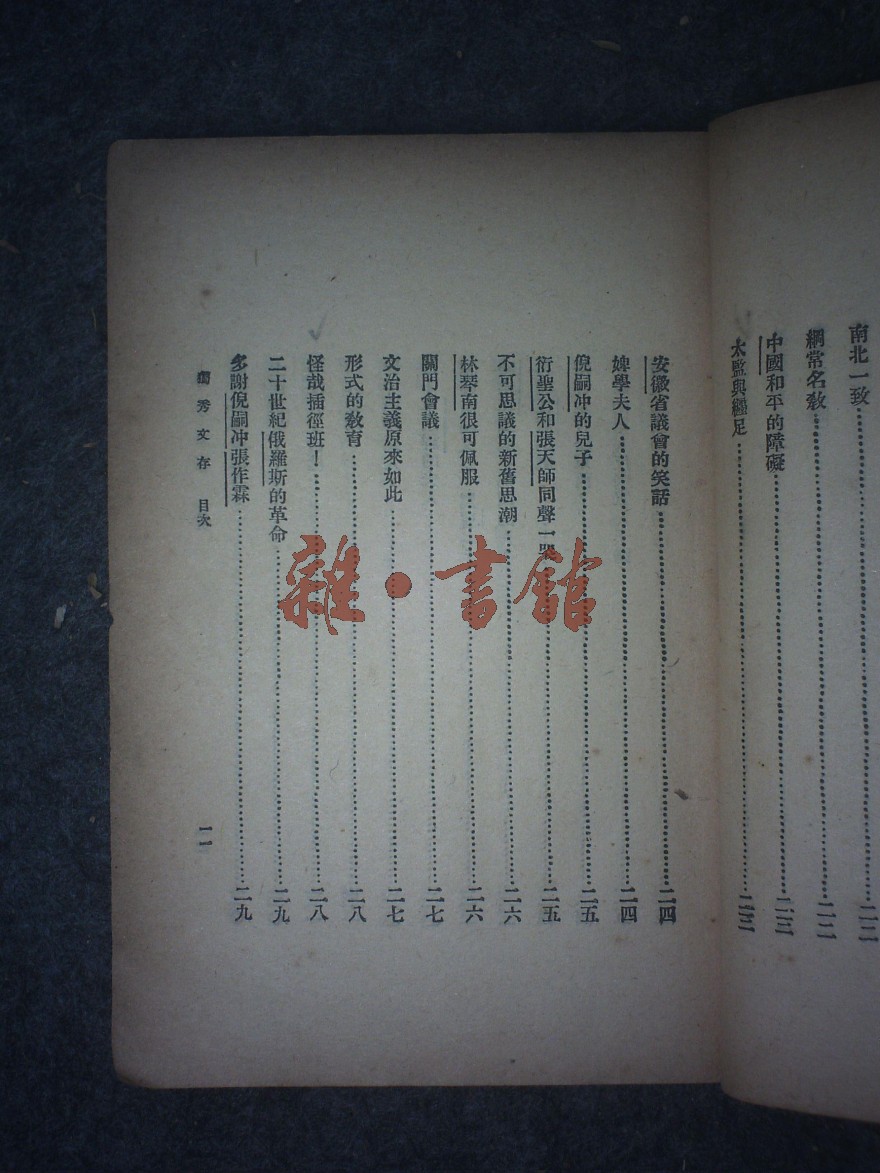 南北一致……二二
綱常名教……二二
中國和平的障礙……二三
太監與纏足……二三
安徽省議會的笑話……二四
婢學夫人……二四
倪嗣冲的兒子……二五
衍聖公和張天師同聲一哭……二五
不可思議的新舊思潮……二六
林琴南很可佩服……二六
關門會議……二七
文治主義原來如此……二七
形式的教育……二八
怪哉插徑班！……二八
二十世紀俄羅斯的革命……二九
多謝倪嗣冲張作霖……二九
獨秀文存 目次 一一
雜·書館